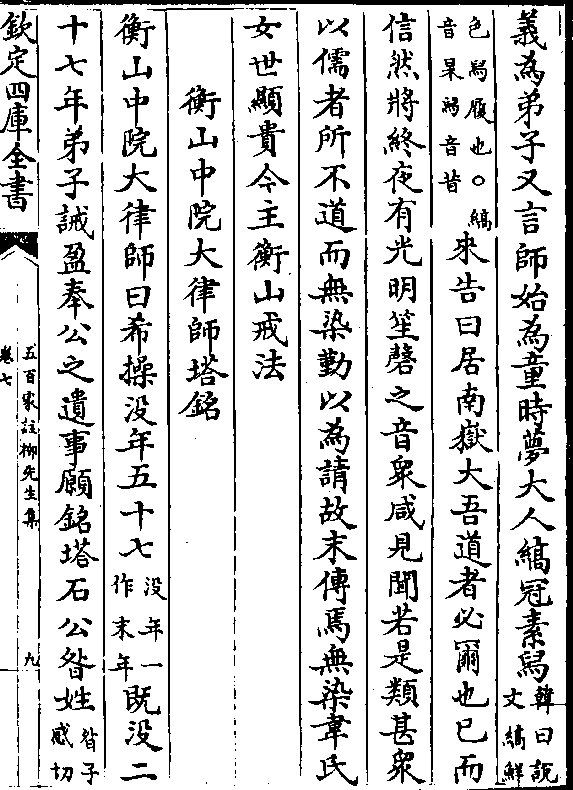 義為弟子又言師始為童時夢大人縞冠素舄韓曰説文縞鮮
色舄履也○縞音杲舄音昔來告曰居南嶽大吾道者必爾也已而
信然將終夜有光明笙磬之音衆咸見聞若是類甚衆
以儒者所不道而無染勤以為請故末傳焉無染韋氏
女世顯貴今主衡山戒法
衡山中院大律師塔銘
衡山中院大律師曰希操没年五十七没年一作末年既没二
十七年弟子誡盈奉公之遺事願銘塔石公昝姓昝子感切
欽定四庫全書
五百家註柳先生集
卷七
九